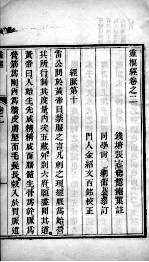 靈樞經卷之二
錢塘張志聰隱菴集註
同學
門人金經文百銘校正
經脈第十
雷公問於黃帝曰禁服之言凡刺之理經脈為始營
其所行制其度量內次五藏外別六府願盡聞其道
黃帝曰人始生先成精精成而腦髓生骨為幹脈為
營筋為剛肉為墻皮膚堅而毛髮長穀入於胃脈道